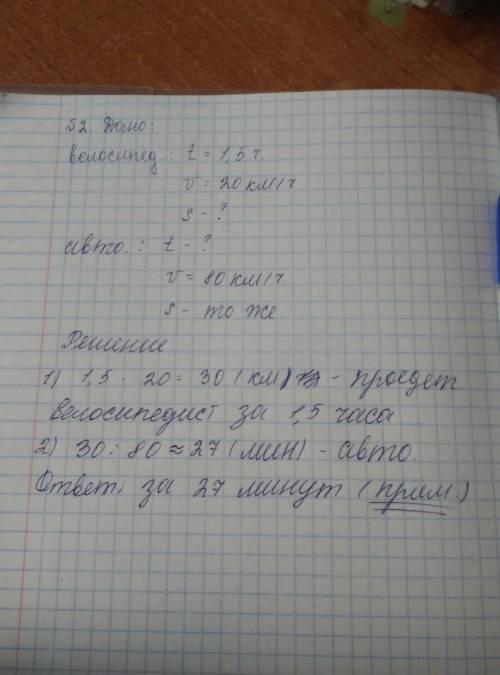 52. Дано:
велосипед.: t = 1,5 ч.
v = 20 км/ч
s - ?
авто.: t - ?
v = 80 км/ч.
s - то же.
Решение
1) 1,5 · 20 = 30 (км) - проедет
велосипедист за 1,5 часа
2) 30 : 80 ≈ 27 (мин) - авто.
Ответ: за 27 минут (прим.)